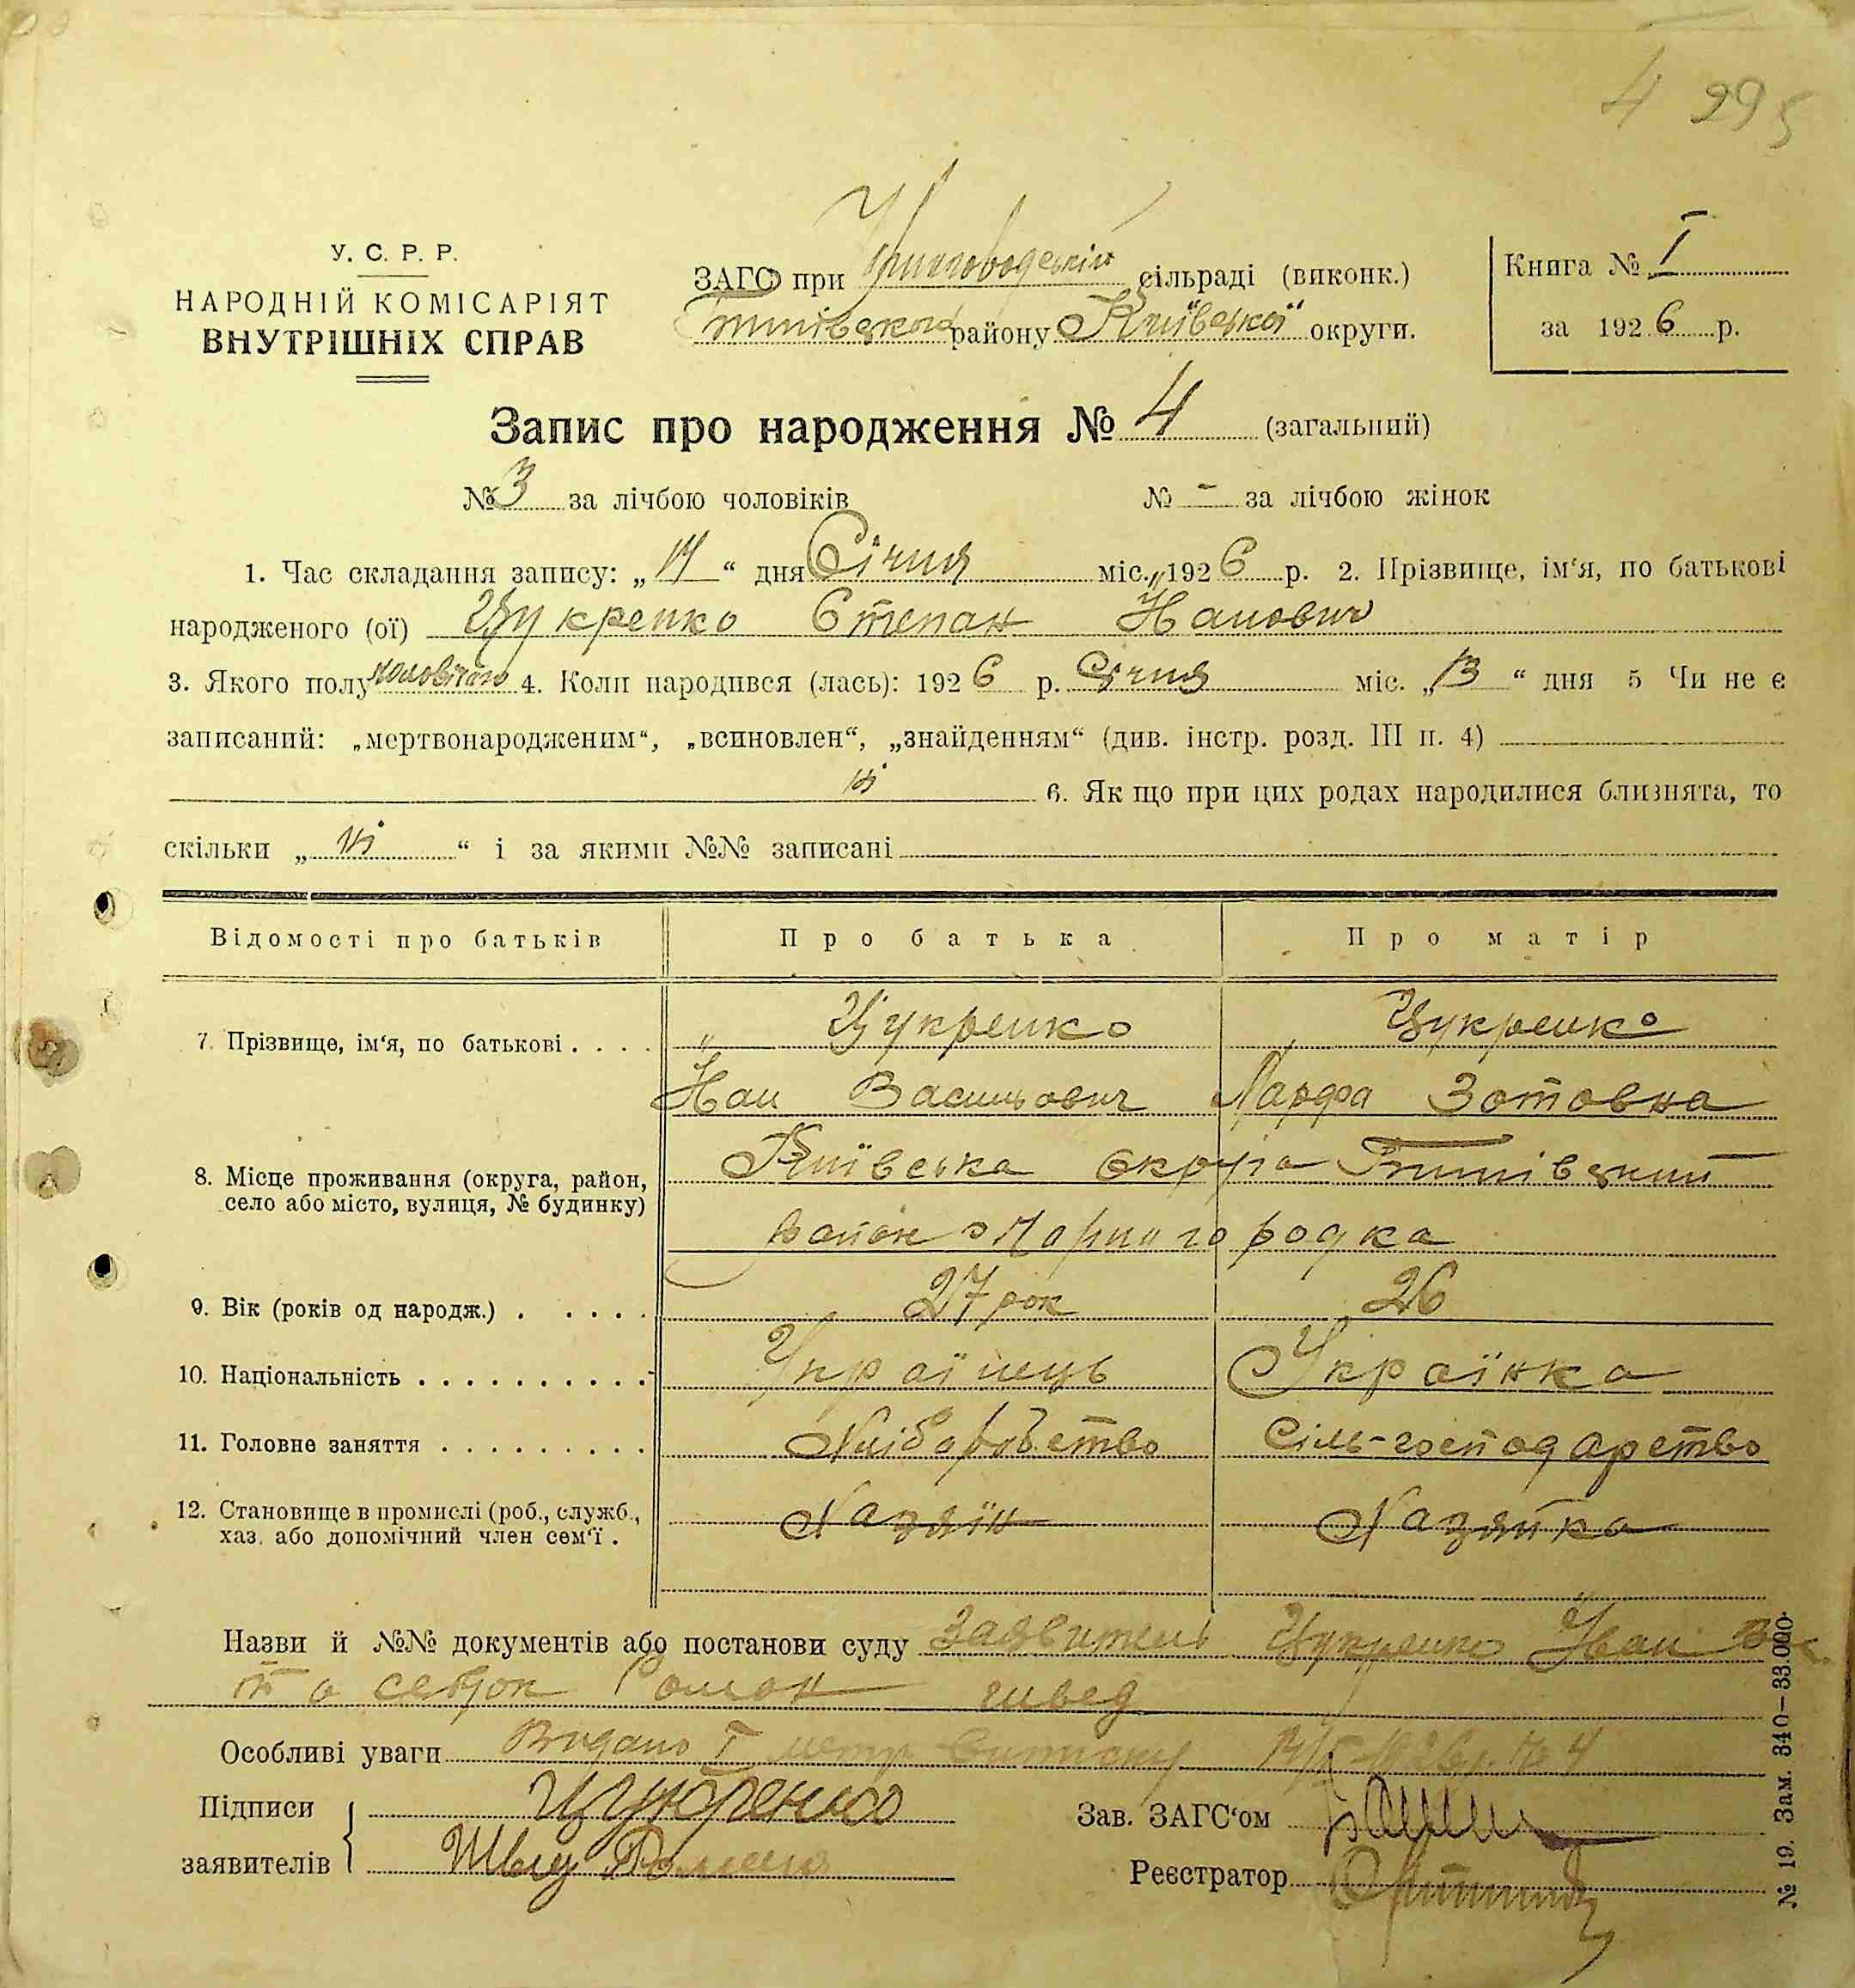 4 295
У. С. Р. Р.
НАРОДНІЙ КОМІСАРІЯТ
ВНУТРІШНІХ СПРАВ
ЗАГС при сільраді (виконк.)
району Київської округи.
Книга № I
за 1926 р.
Запис про народження № 4 (загальний)
№ 3 за лічбою чоловіків № - за лічбою жінок
1. Час складання запису: „14“ дня Січня міс. 1926 р. 2. Прізвище, ім‘я, по батькові
народженого (ої) Цукренко Степан Іванович
3. Якого полу чоловічого 4. Коли народився (лась): 1926 р. Січня міс. „13“ дня 5 Чи не є
записаний: „мертвонародженим“, „всиновлен“, „знайденням“ (див. інстр. розд. III п. 4)
ні 6. Як що при цих родах народилися близнята, то
скільки „ні“ і за якими №№ записані
Відомості про батьків Про батька Про матір
7. Прізвище, ім‘я, по батькові . . . . „ Цукренко Цукренко
Іван Васильович Марфа Зотовна
8. Місце проживання (округа, район,
село або місто, вулиця, № будинку)
Київська округа
район Чорногородка
9. Вік (років од народж.) . . . . . 27 рок 26
10. Національність . . . . . . . . . . Українець Українка
11. Головне заняття . . . . . . . . . Хліборобство Сіль-господарство
12. Становище в промислі (роб., служб.,
хаз. або допомічний член сем‘ї .
Хазяїн Хазяйка
Назви й №№ документів або постанови суду Заявитель Цукренко Іван
та свідок Роман Швед
Особливі уваги Видано витписку № 4
Підписи заявителів Цукренко
Швед Роман
Зав. ЗАГС‘ом
Реєстратор
№ 19. Зам. 340—33.000.